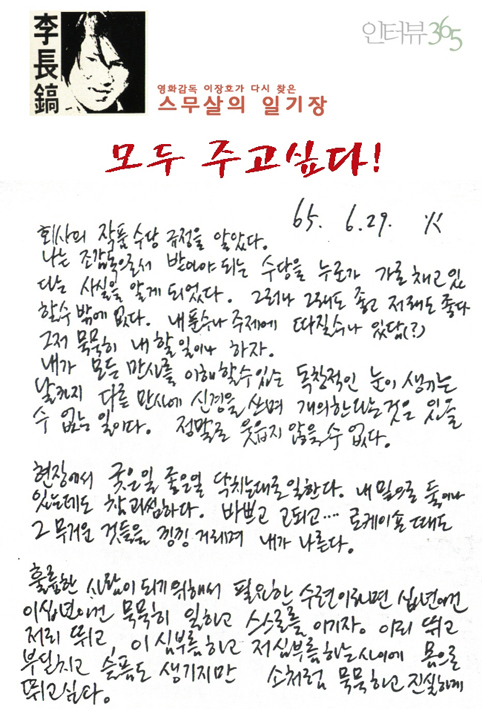 李長鎬
인터뷰365
영화감독 이장호가 다시 찾은
스무살의 일기장
모두 주고싶다!
65. 6.29. 火
회사의 작품수당 규정을 알았다.
나는 조감독으로서 받아야 되는 수당을 누군가 가로채고 있
다는 사실을 알게 되었다. 그러나 그래도 좋고 저래도 좋다
할수 밖에 없다. 내 푼수나 주제에 따질수나 있담(?)
그저 묵묵히 내 할일이나 하자.
내가 모든 만사를 이해할수 있는 독창적인 눈이 생기는
날까지 다른 만사에 신경을 쓰며 개의한다는 것은 있을
수 없는 일이다. 정말로 웃웁지 않을 수 없다.
현장에서 궂은일 좋은일 닥치는대로 일한다. 내 밑으로 둘이나
있는데도 참 괴씸하다. 바쁘고 고되고… 로케이숀 때도
그 무거운 것들을 낑낑 거리며 내가 나른다.
훌륭한 사람이 되기 위해서 필요한 수련이라면 십년이건
이십년이건 묵묵히 일하고 스스로를 이기자. 이리 뛰고
저리 뛰고, 이 심부름하고 저 심부름하는 사이에 몸으로
부딪치고 슬픔도 생기지만 소처럼 묵묵하고 진실하게
뛰고싶다.